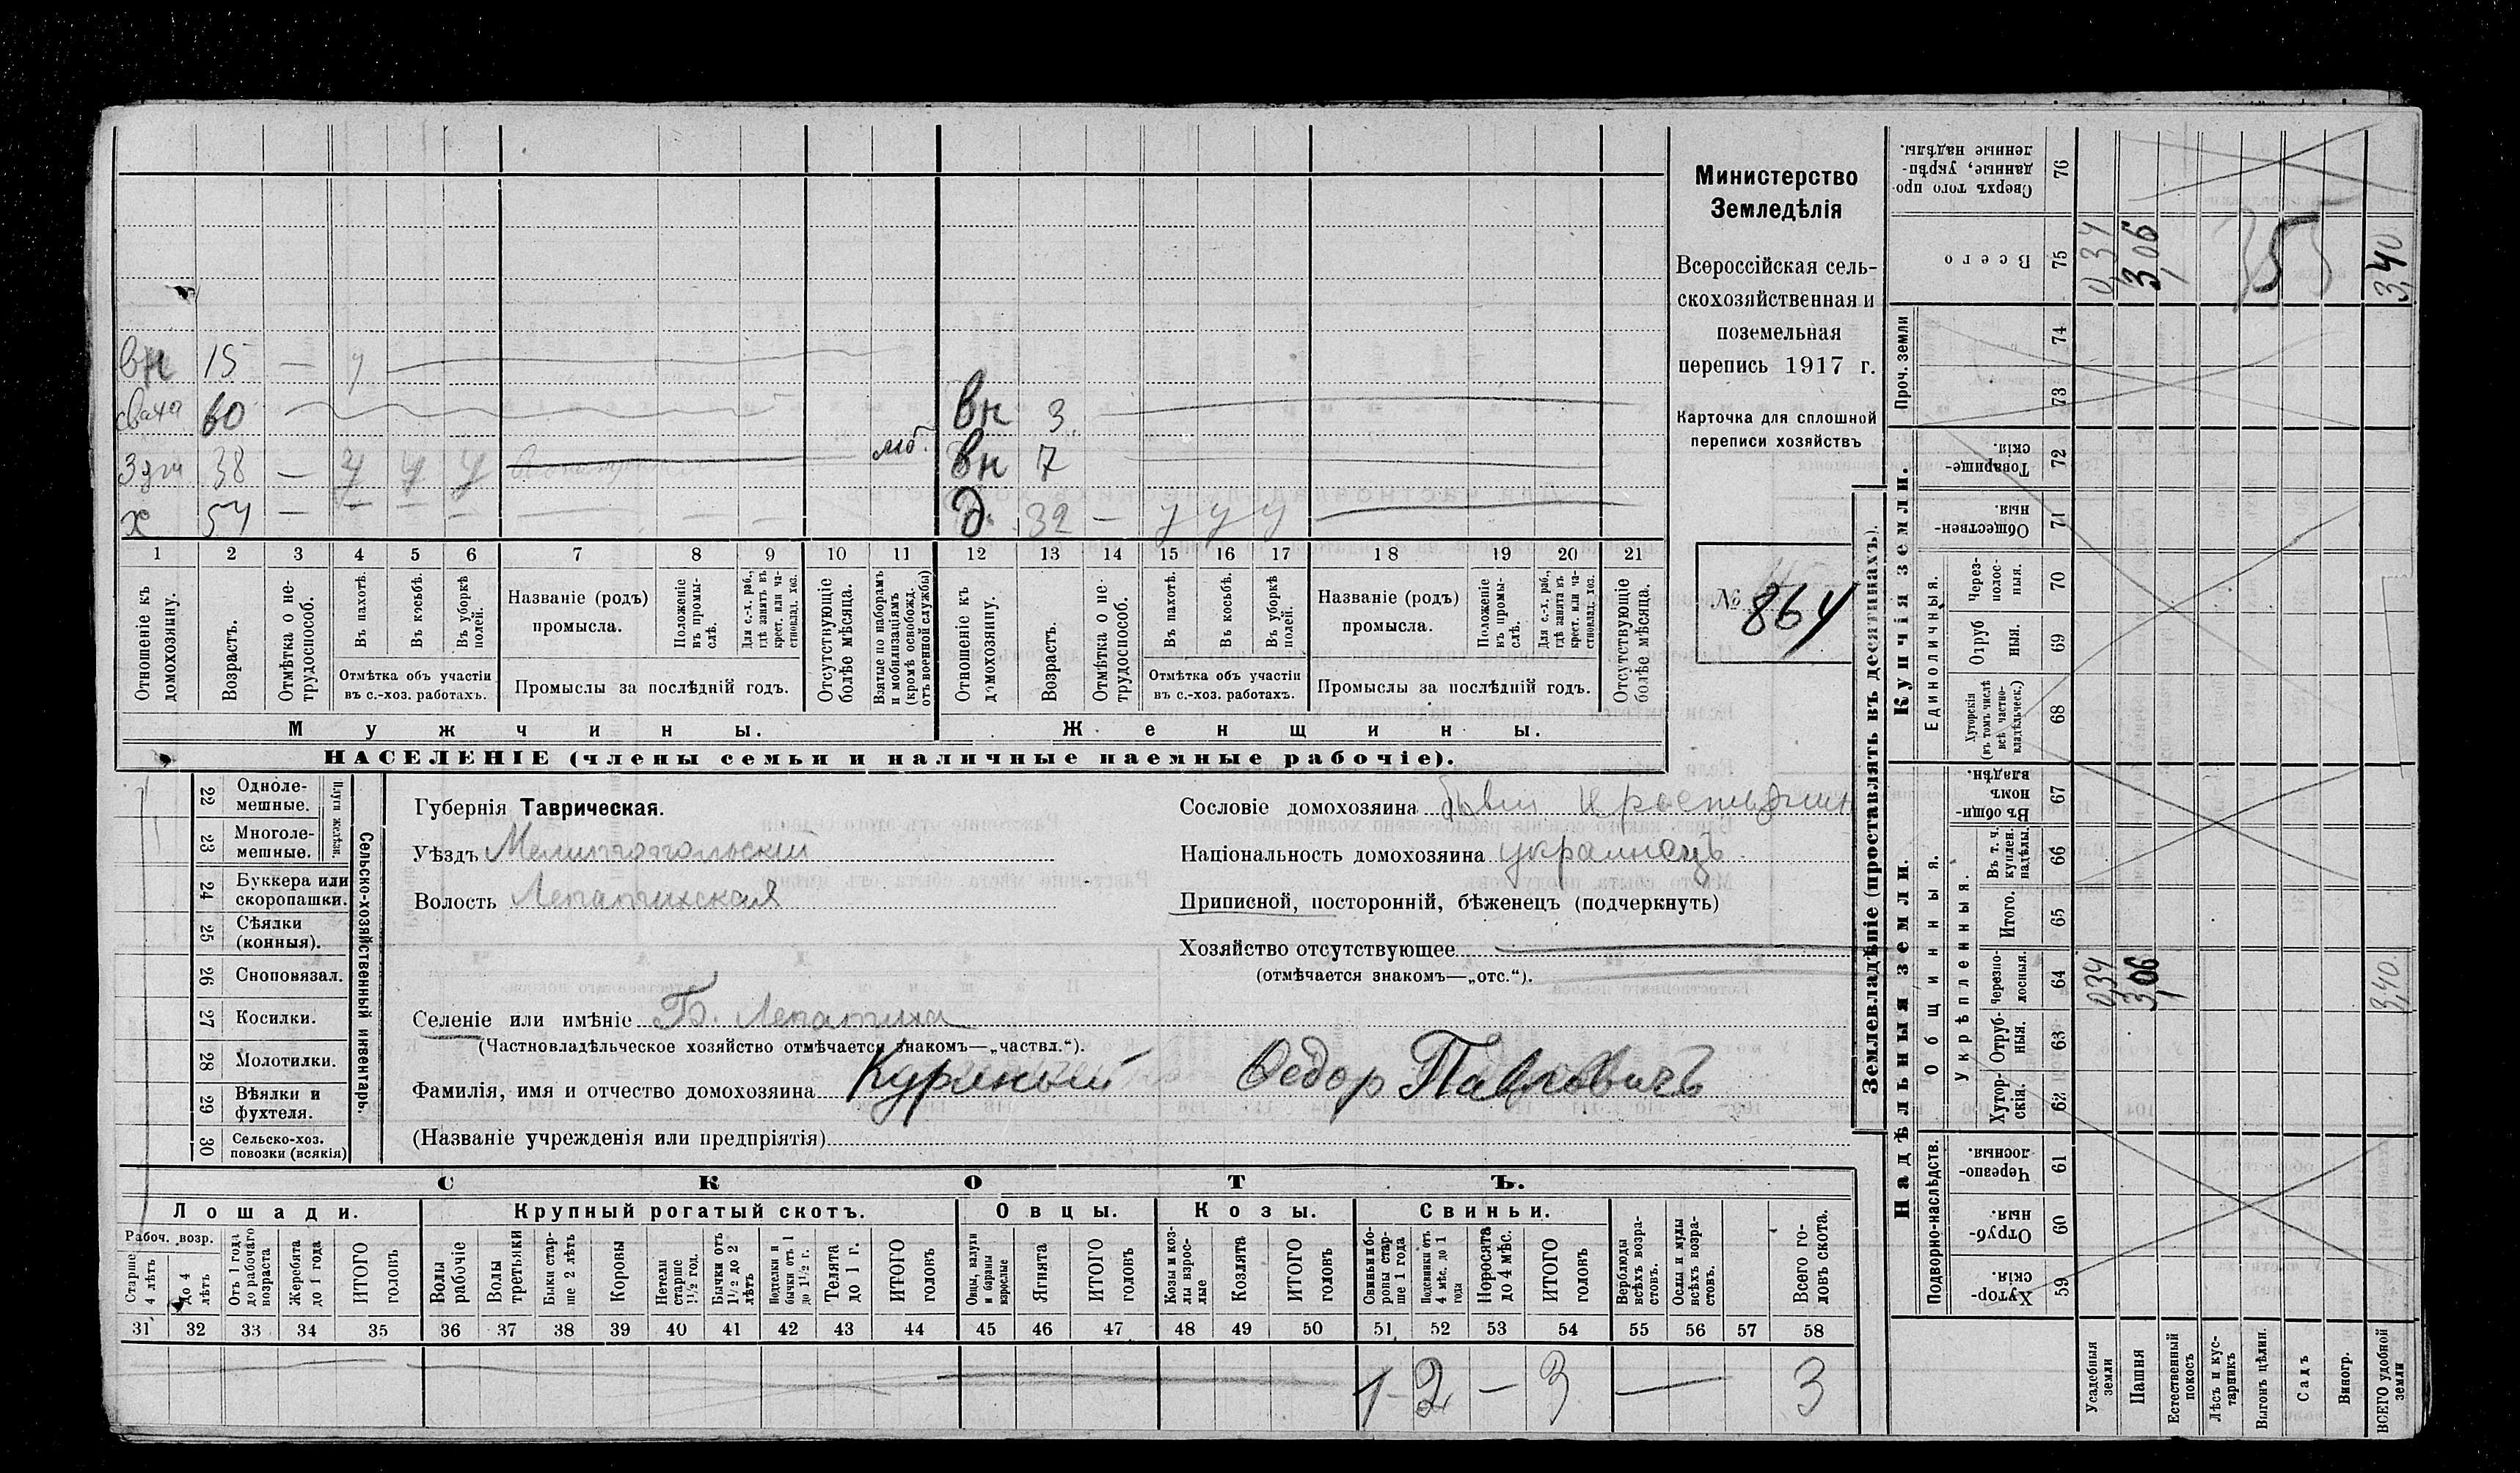 Министерство
Земледѣлія
Всероссійская сель-
скохозяйственная и
поземельная
перепись 1917 г.
Карточка для сплошной
переписи хозяйствъ
№ 864
вн 15 — у
сваха 60
вн 3
зять 38 — у у у моб.
вн 7
х 54 — — — —
д. 32 — у у у
1 2 3 4 5 6 7 8 9 10 11 12 13 14 15 16 17 18 19 20 21
Отношеніе къ домохозяину.
Возрастъ.
Отмѣтка о не-трудоспособ.
Въ пахотѣ.
Въ косьбѣ.
Въ уборкѣ полей.
Отмѣтка объ участіи
въ с.-хоз. работахъ.
Названіе (родъ)
промысла.
Положеніе въ промы-слѣ.
Для с.-х. раб., гдѣ занятъ въ крест. или ча-стновлад. хоз.
Промыслы за послѣдній годъ.
Отсутствующіе болѣе мѣсяца.
Взятые по наборамъ и мобилизаціямъ (кромѣ освобожд. отъ военной службы)
Отношеніе къ домохозяину.
Возрастъ.
Отмѣтка о не-трудоспособ.
Въ пахотѣ.
Въ косьбѣ.
Въ уборкѣ полей.
Отмѣтка объ участіи
въ с.-хоз. работахъ.
Названіе (родъ)
промысла.
Положеніе въ промы-слѣ.
Для с.-х. раб., гдѣ занята въ крест. или ча-стновлад. хоз.
Промыслы за послѣдній годъ.
Отсутствующіе болѣе мѣсяца.
Мужчины.
Женщины.
НАСЕЛЕНІЕ (члены семьи и наличные наемные рабочіе).
Сельско-хозяйственный инвентарь.
Плуги желѣзн.
22 Одноле-мешные.
23 Многоле-мешные.
24 Буккера или скоропашки.
25 Сѣялки (конныя).
26 Сноповязал.
27 Косилки.
28 Молотилки.
29 Вѣялки и фухтеля.
30 Сельско-хоз. повозки (всякія)
Губернія Таврическая.
Уѣздъ Мелитопольскій
Волость Лепатихская
Сословіе домохозяина бывш крестьянин
Національность домохозяина украинецъ
Приписной, посторонній, бѣженецъ (подчеркнуть)
Хозяйство отсутствующее
(отмѣчается знакомъ—„отс.“).
Селеніе или имѣніе Б. Лепатиха
(Частновладѣльческое хозяйство отмѣчается знакомъ—„частвл.“).
Фамилія, имя и отчество домохозяина Куряный Федор Павловичъ
(Названіе учрежденія или предпріятія)
СКОТЪ.
Лошади.
Крупный рогатый скотъ.
Овцы.
Козы.
Свиньи.
Рабоч. возр.
Старше 4 лѣтъ
до 4 лѣтъ
Отъ 1 года до рабочаго возраста
Жеребята до 1 года
ИТОГО головъ
Волы рабочіе
Волы третьяки
Быки стар-ше 2 лѣтъ
Коровы
Нетели старше 1½ год.
Бычки отъ 1½ до 2 лѣтъ
Подтелки и бычки отъ 1 до 1½ г.
Телята до 1 г.
ИТОГО головъ
Овцы, валухи и бараны взрослые
Ягнята
ИТОГО головъ
Козы и коз-лы взрос-лые
Козлята
ИТОГО головъ
Свиньи и бо-ровы стар-ше 1 года
Подсвинки отъ 4 мѣс. до 1 года
Поросята до 4 мѣс.
ИТОГО головъ
Верблюды всѣхъ возра-стовъ.
Ослы и мулы всѣхъ возра-стовъ.
Всего го-ловъ скота.
31 32 33 34 35 36 37 38 39 40 41 42 43 44 45 46 47 48 49 50 51 52 53 54 55 56 57 58
1 2 — 3 — 3
Землевладѣніе (проставлять въ десятинахъ).
Надѣльныя земли.
Купчія земли.
Подворно-наслѣдств.
Общинныя.
Укрѣпленныя.
Единоличныя.
Проч. земли
Сверхъ того про-данные, укрѣп-ленные надѣлы. 76
Всего 75 0,34 3,06 3,40
74
73
Товарище-скія. 72
Обществен-ныя. 71
Черезполос-ныя. 70
Отрубныя. 69
Хуторскія (въ томъ числѣ всѣ частно-владѣльческ.) 68
Въ общин-номъ владѣн. 67
Въ т. ч. куплен. надѣлы. 66
Итого. 65
Черезпо-лосныя. 64 0,34 3,06 3,40
Отруб-ныя. 63
Хутор-скія. 62
Черезпо-лосныя. 61
Отруб-ныя. 60
Хутор-скія. 59
Усадебныя земли
Пашня
Естественный покосъ
Лѣсъ и кус-тарникъ
Выгонъ цѣлин.
Садъ
Виногр.
ВСЕГО удобной земли